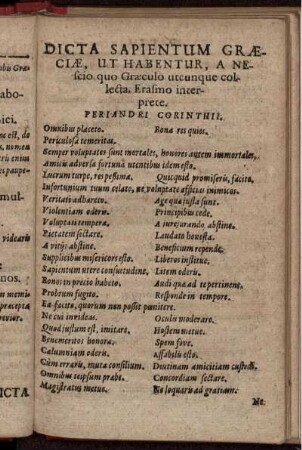 DICTA SAPIENTUM GRÆ-
CIÆ, UT HABENTUR, A NE-
scio quo Græculo utcunque col-
lecta, Erasmo inter-
prete.
PERIANDRI CORINTHII.
Omnibus placeto. Bona res quies.
Periculosa temeritas.
Semper voluptates sunt mortales, honores autem immortales.
Amicis adversa fortunâ utentibus idem esto.
Lucrum turpe, res pessima. Quicquid promiseris, facito.
Infortunium tuum celato, ne voluptate afficias inimicos.
Veritati adhæreto. Age quæ justa sunt.
Violentiam oderis. Principibus cede.
Voluptati tempera. A jurejurando abstine.
Pietatem sectare. Laudato honesta.
A vitijs abstine. Beneficium repende.
Supplicibus misericors esto. Liberos institue.
Sapientum utere consuetudine. Litem oderis.
Bonos in precio habeto. Audi quæ ad te pertinent.
Probrum fugito. Responde in tempore.
Ea facito, quorum non possit pœnitere.
Ne cui invideas. Oculis moderare.
Quod justum est, imitare. Hostem metue.
Benemeritos honora. Spem fove.
Calumniam oderis. Affabilis esto.
Cùm erraris, muta consilium. Diutinam amicitiam custodi.
Omnibus teipsum præbe. Concordiam sectare.
Magistratus metue. Ne loquaris ad gratiam.
Ne
DICTA